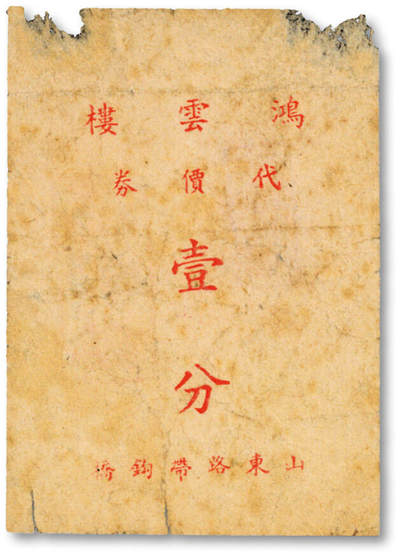 鴻雲樓
代價券
壹分
山東路帶鉤橋